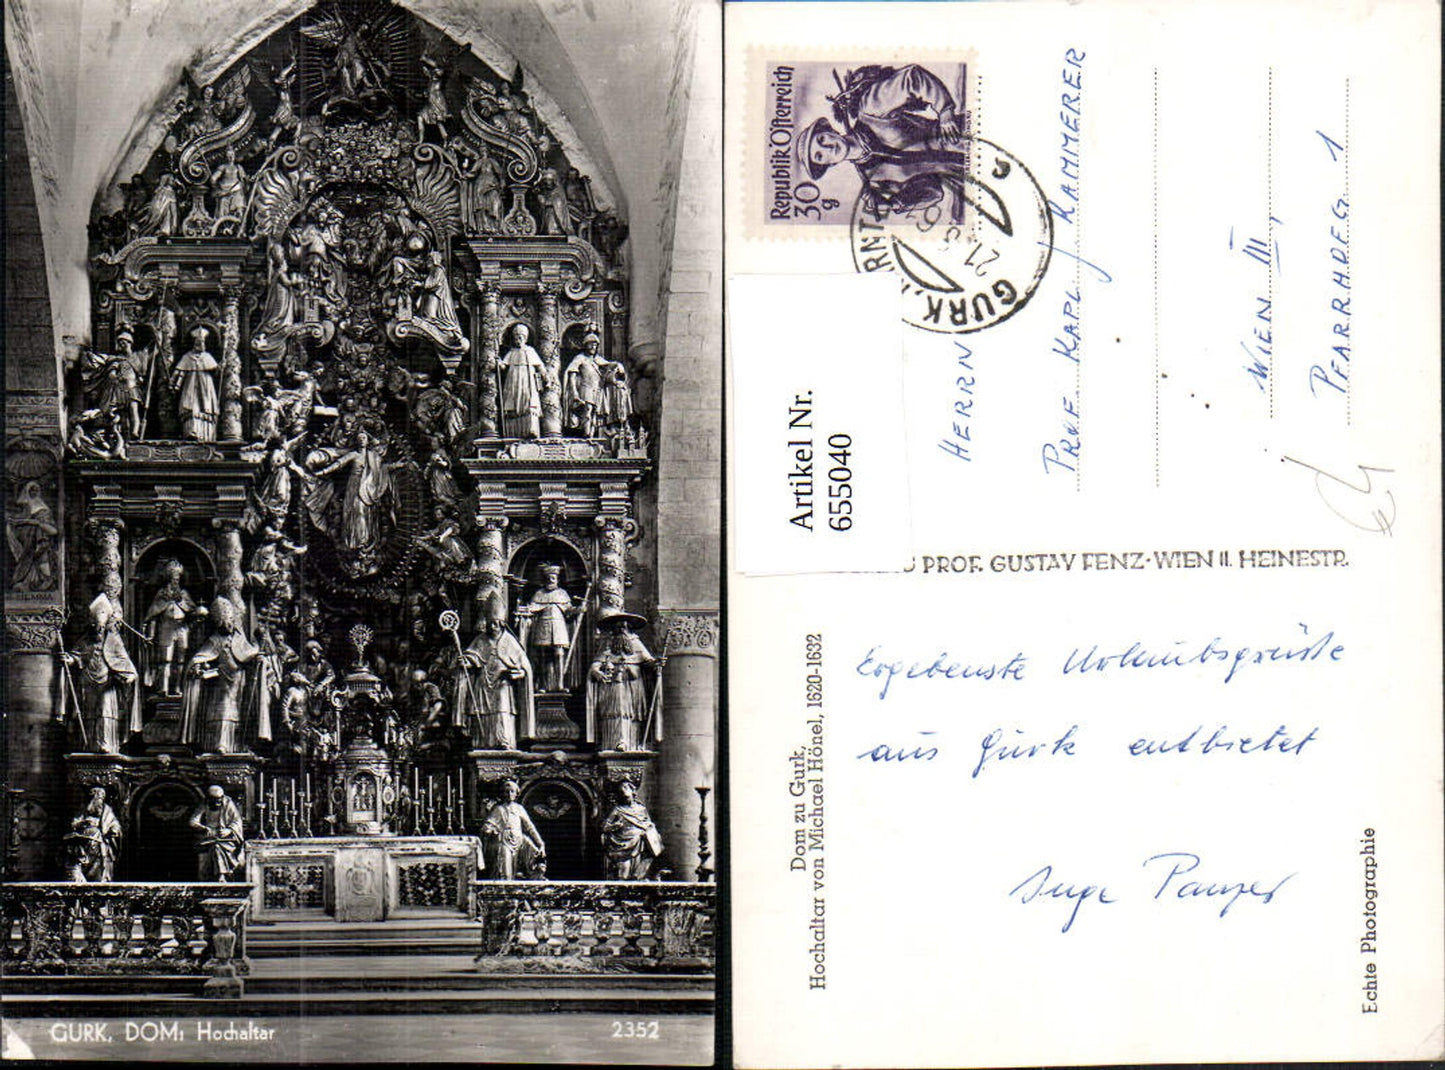 GURK, DOM: Hochaltar
2352
Republik Österreich
30
g
GURK, KÄRNTEN
Artikel Nr.
655040
HERRN
PROF. KARL J. KAMMERER
WIEN III,
PFARRHOFG. 1
PROF. GUSTAV FENZ · WIEN II. HEINESTR.
Dom zu Gurk,
Hochaltar von Michael Hönel, 1620-1632
Ergebenste Urlaubsgrüße
aus Gurk entbietet
Inge Panzer
Echte Photographie